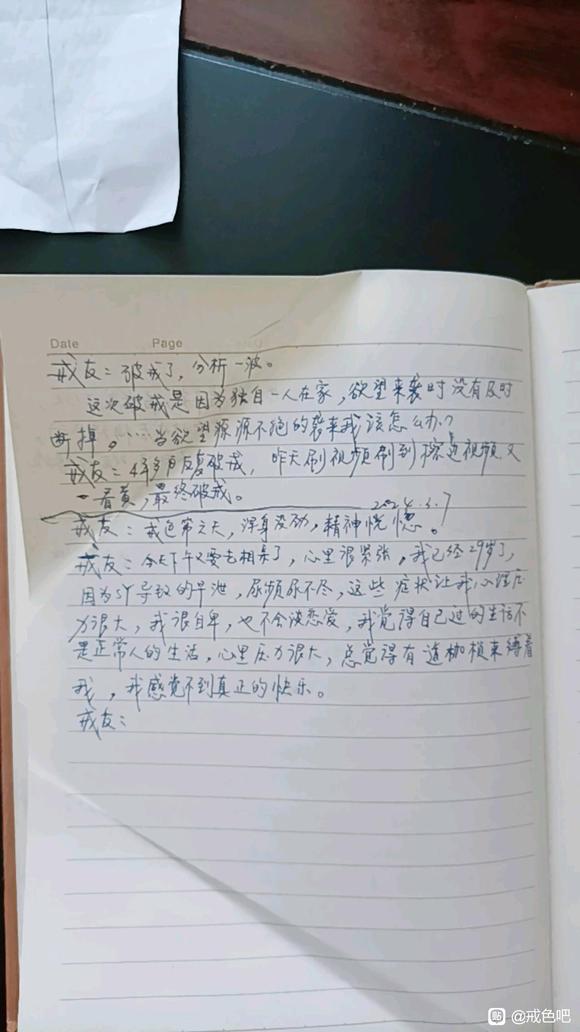 Date Page
戒友：破戒了，分析一波。
这次破戒是因为独自一人在家，欲望来袭时没有及时
断掉。……当欲望源源不绝的袭来我该怎么办？
戒友：4年多反复破戒，昨天刷视频刷到擦边视频又
一看黄，最终破戒。
2024.3.7
戒友：戒色第七天，浑身没劲，精神恍惚。
戒友：今天下午又要去相亲了，心里很紧张，我已经29岁了，
因为SY导致的早泄，尿频尿不尽，这些症状让我心理压
力很大，我很自卑，也不会谈恋爱，我觉得自己过的生活不
是正常人的生活，心里压力很大，总觉得有道枷锁束缚着
我，我感觉不到真正的快乐。
戒友：
贴 @戒色吧